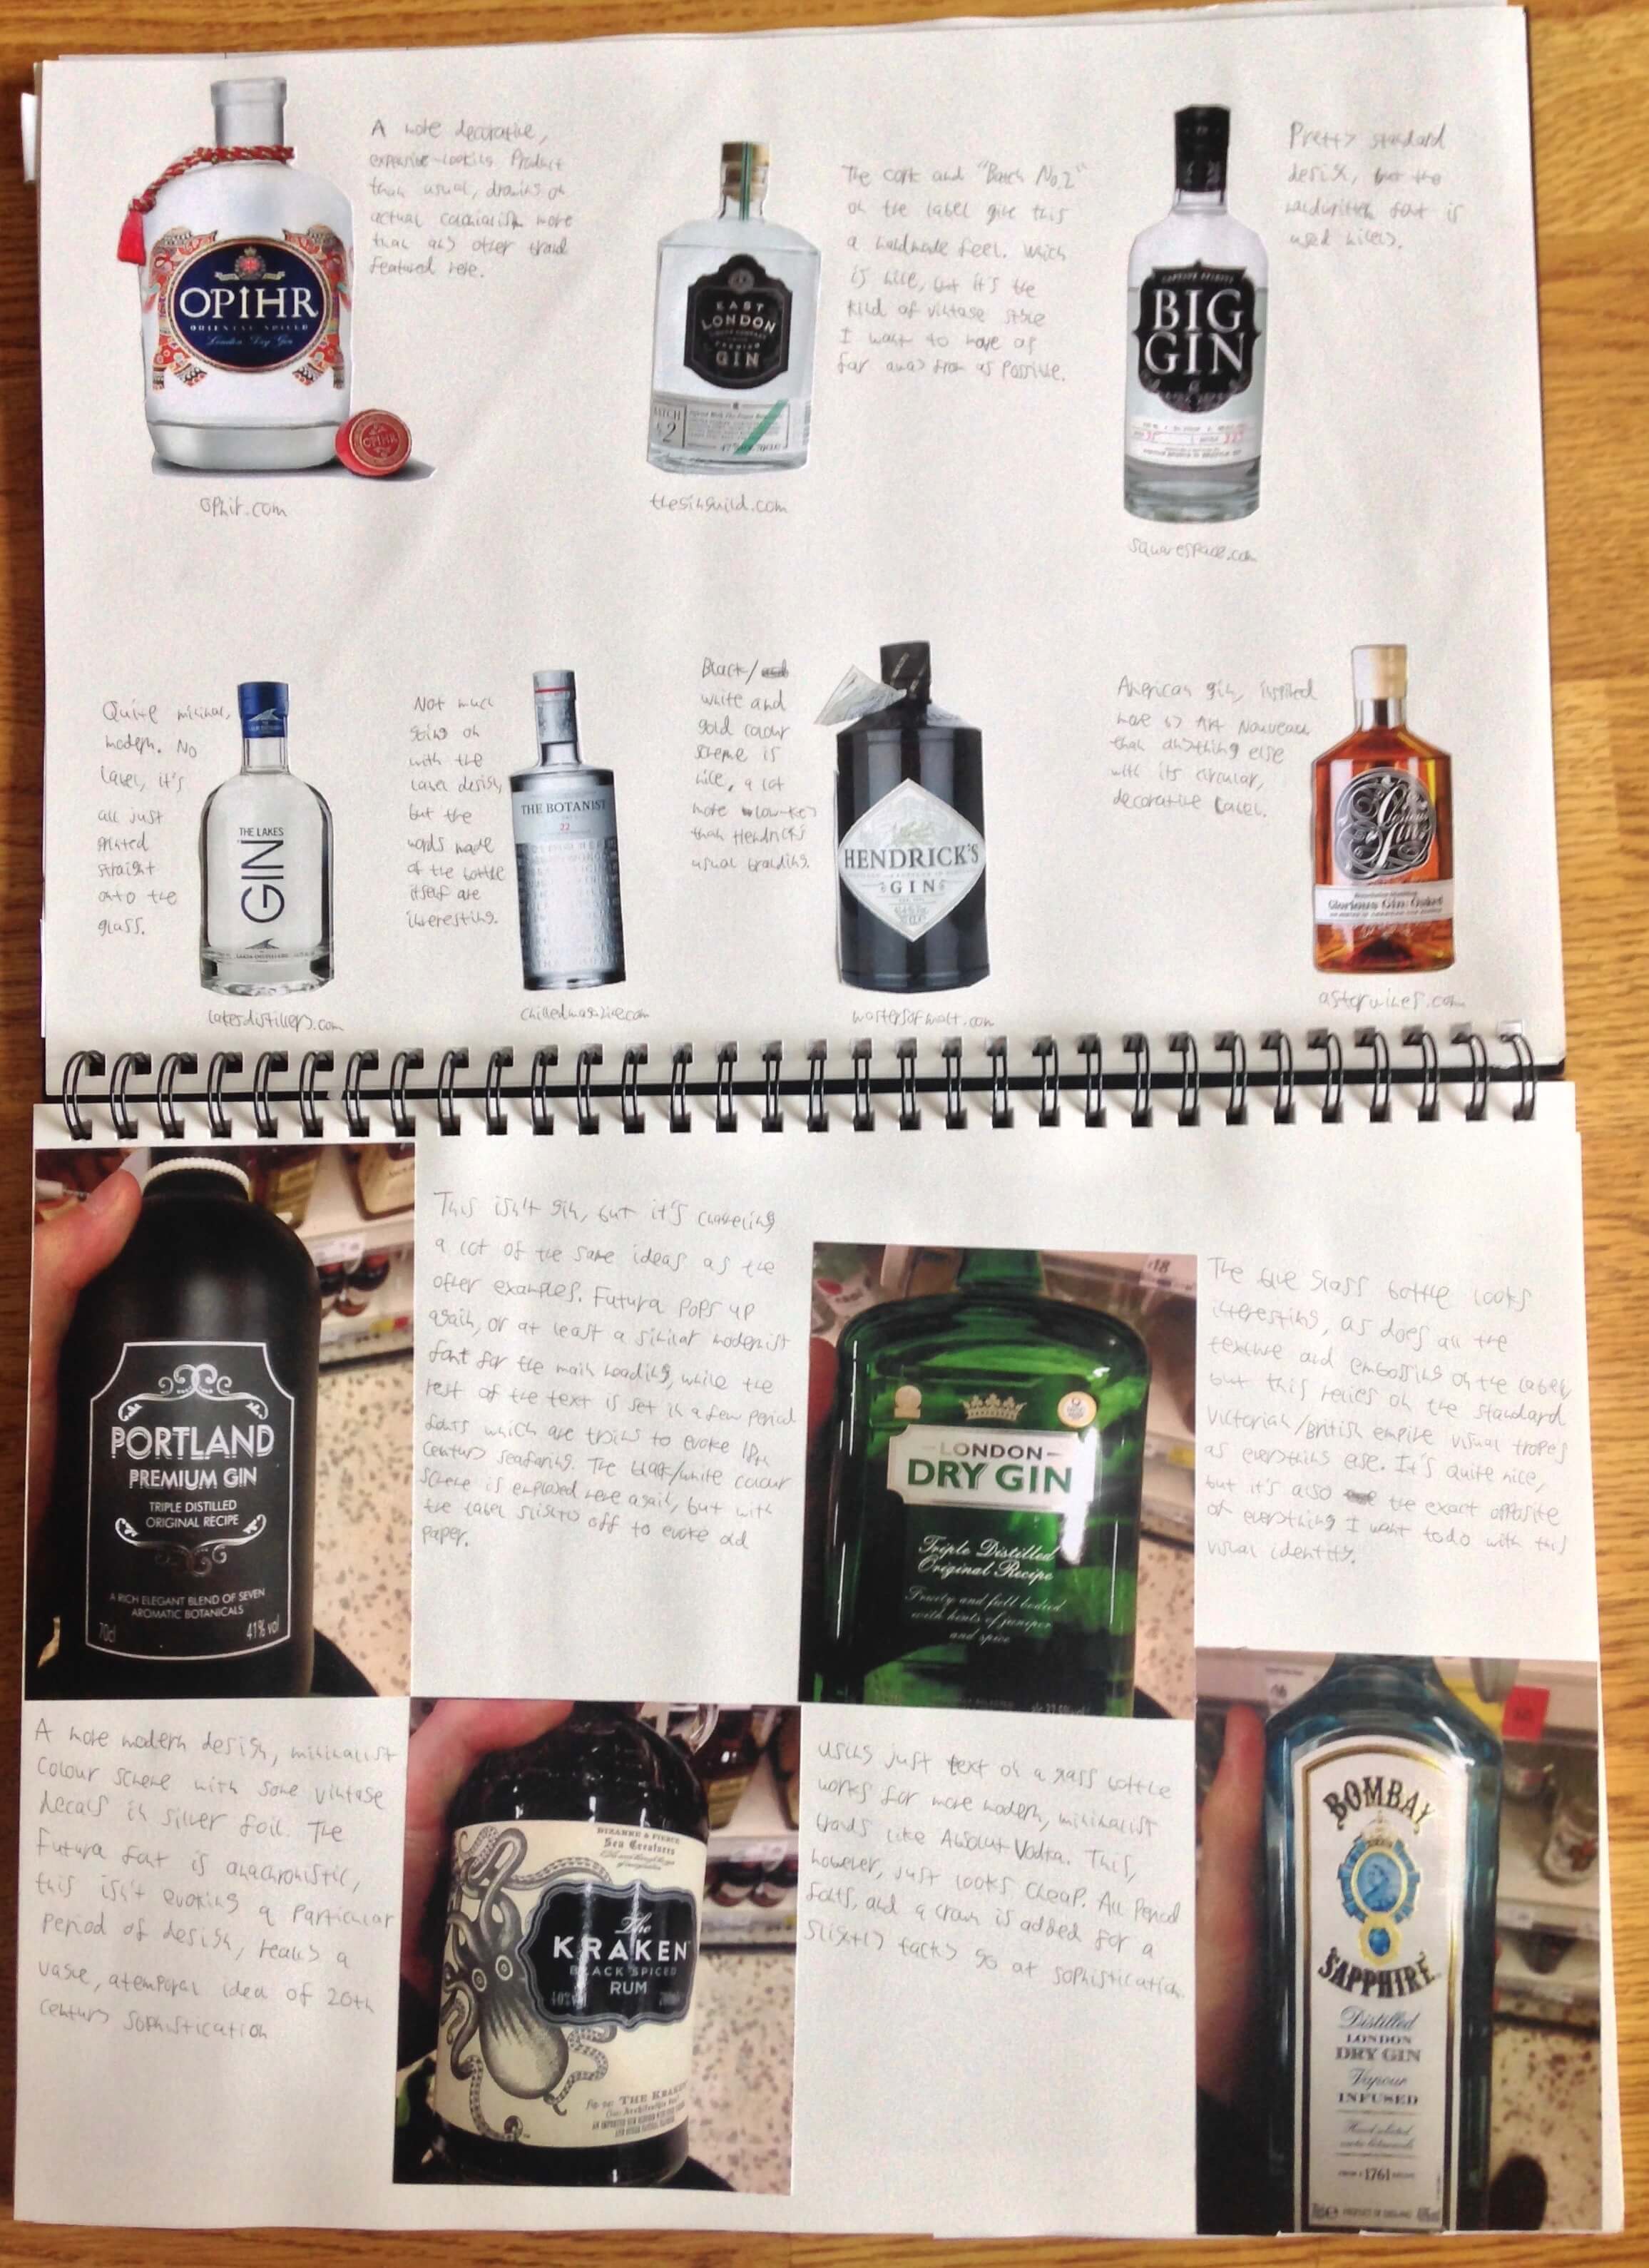 A more decorative,
expensive-looking product
than usual, draws on
actual colonialism more
than any other brand
featured here.
OPIHR
ORIENTAL SPICED
London Dry Gin
OPIHR
ophir.com
EAST
LONDON
LIQUOR COMPANY
PREMIUM
GIN
BATCH
№2
theginguild.com
The cork and "Batch No.2"
on the label give this
a handmade feel. Which
is nice, but it's the
kind of vintage style
I want to move as
far away from as possible.
BIG
GIN
squarespace.com
Pretty standard
design, but the
handwritten font is
used nicely.
Quite minimal,
modern. No
label, it's
all just
printed
straight
onto the
glass.
THE LAKES
GIN
lakesdistillery.com
Not much
going on
with the
label design,
but the
words made
of the bottle
itself are
interesting.
THE BOTANIST
22
chilledmagazine.com
Black/and
white and
gold colour
scheme is
nice, a lot
more low-key
than Hendrick's
usual branding.
HENDRICK'S
GIN
mastersofmalt.com
American gin, inspired
more by Art Nouveau
than anything else
with its circular,
decorative label.
Glorious
Gin
Glorious Gin: Oaked
astorwines.com
PORTLAND
PREMIUM GIN
TRIPLE DISTILLED
ORIGINAL RECIPE
A RICH ELEGANT BLEND OF SEVEN
AROMATIC BOTANICALS
70cl 41% vol
This isn't gin, but it's channeling
a lot of the same ideas as the
other examples. Futura pops up
again, or at least a similar modernist
font for the main heading, while the
rest of the text is set in a few period
fonts which are trying to evoke 18th
century seafaring. The black/white colour
scheme is employed here again, but with
the label slightly off to evoke old
paper.
£18
LONDON
DRY GIN
Triple Distilled
Original Recipe
Fruity and full bodied
with hints of juniper
and spice
The blue glass bottle looks
interesting, as does all the
texture and embossing on the label,
but this relies on the standard
Victorian/British empire visual tropes
as everything else. It's quite nice,
but it's also the exact opposite
of everything I want to do with this
visual identity.
A more modern design, minimalist
colour scheme with some vintage
decals in silver foil. The
Futura font is anachronistic,
this isn't evoking a particular
period of design, really a
vague, atemporal idea of 20th
century sophistication
BIZARRE & FIERCE
Sea Creatures
The
KRAKEN
BLACK SPICED
RUM
40%
THE KRAKEN
Using just text on a glass bottle
works for more modern, minimalist
brands like Absolut Vodka. This,
however, just looks cheap. All period
fonts, and a crown is added for a
slightly tacky go at sophistication.
BOMBAY
SAPPHIRE
Distilled
LONDON
DRY GIN
Vapour
INFUSED
1761